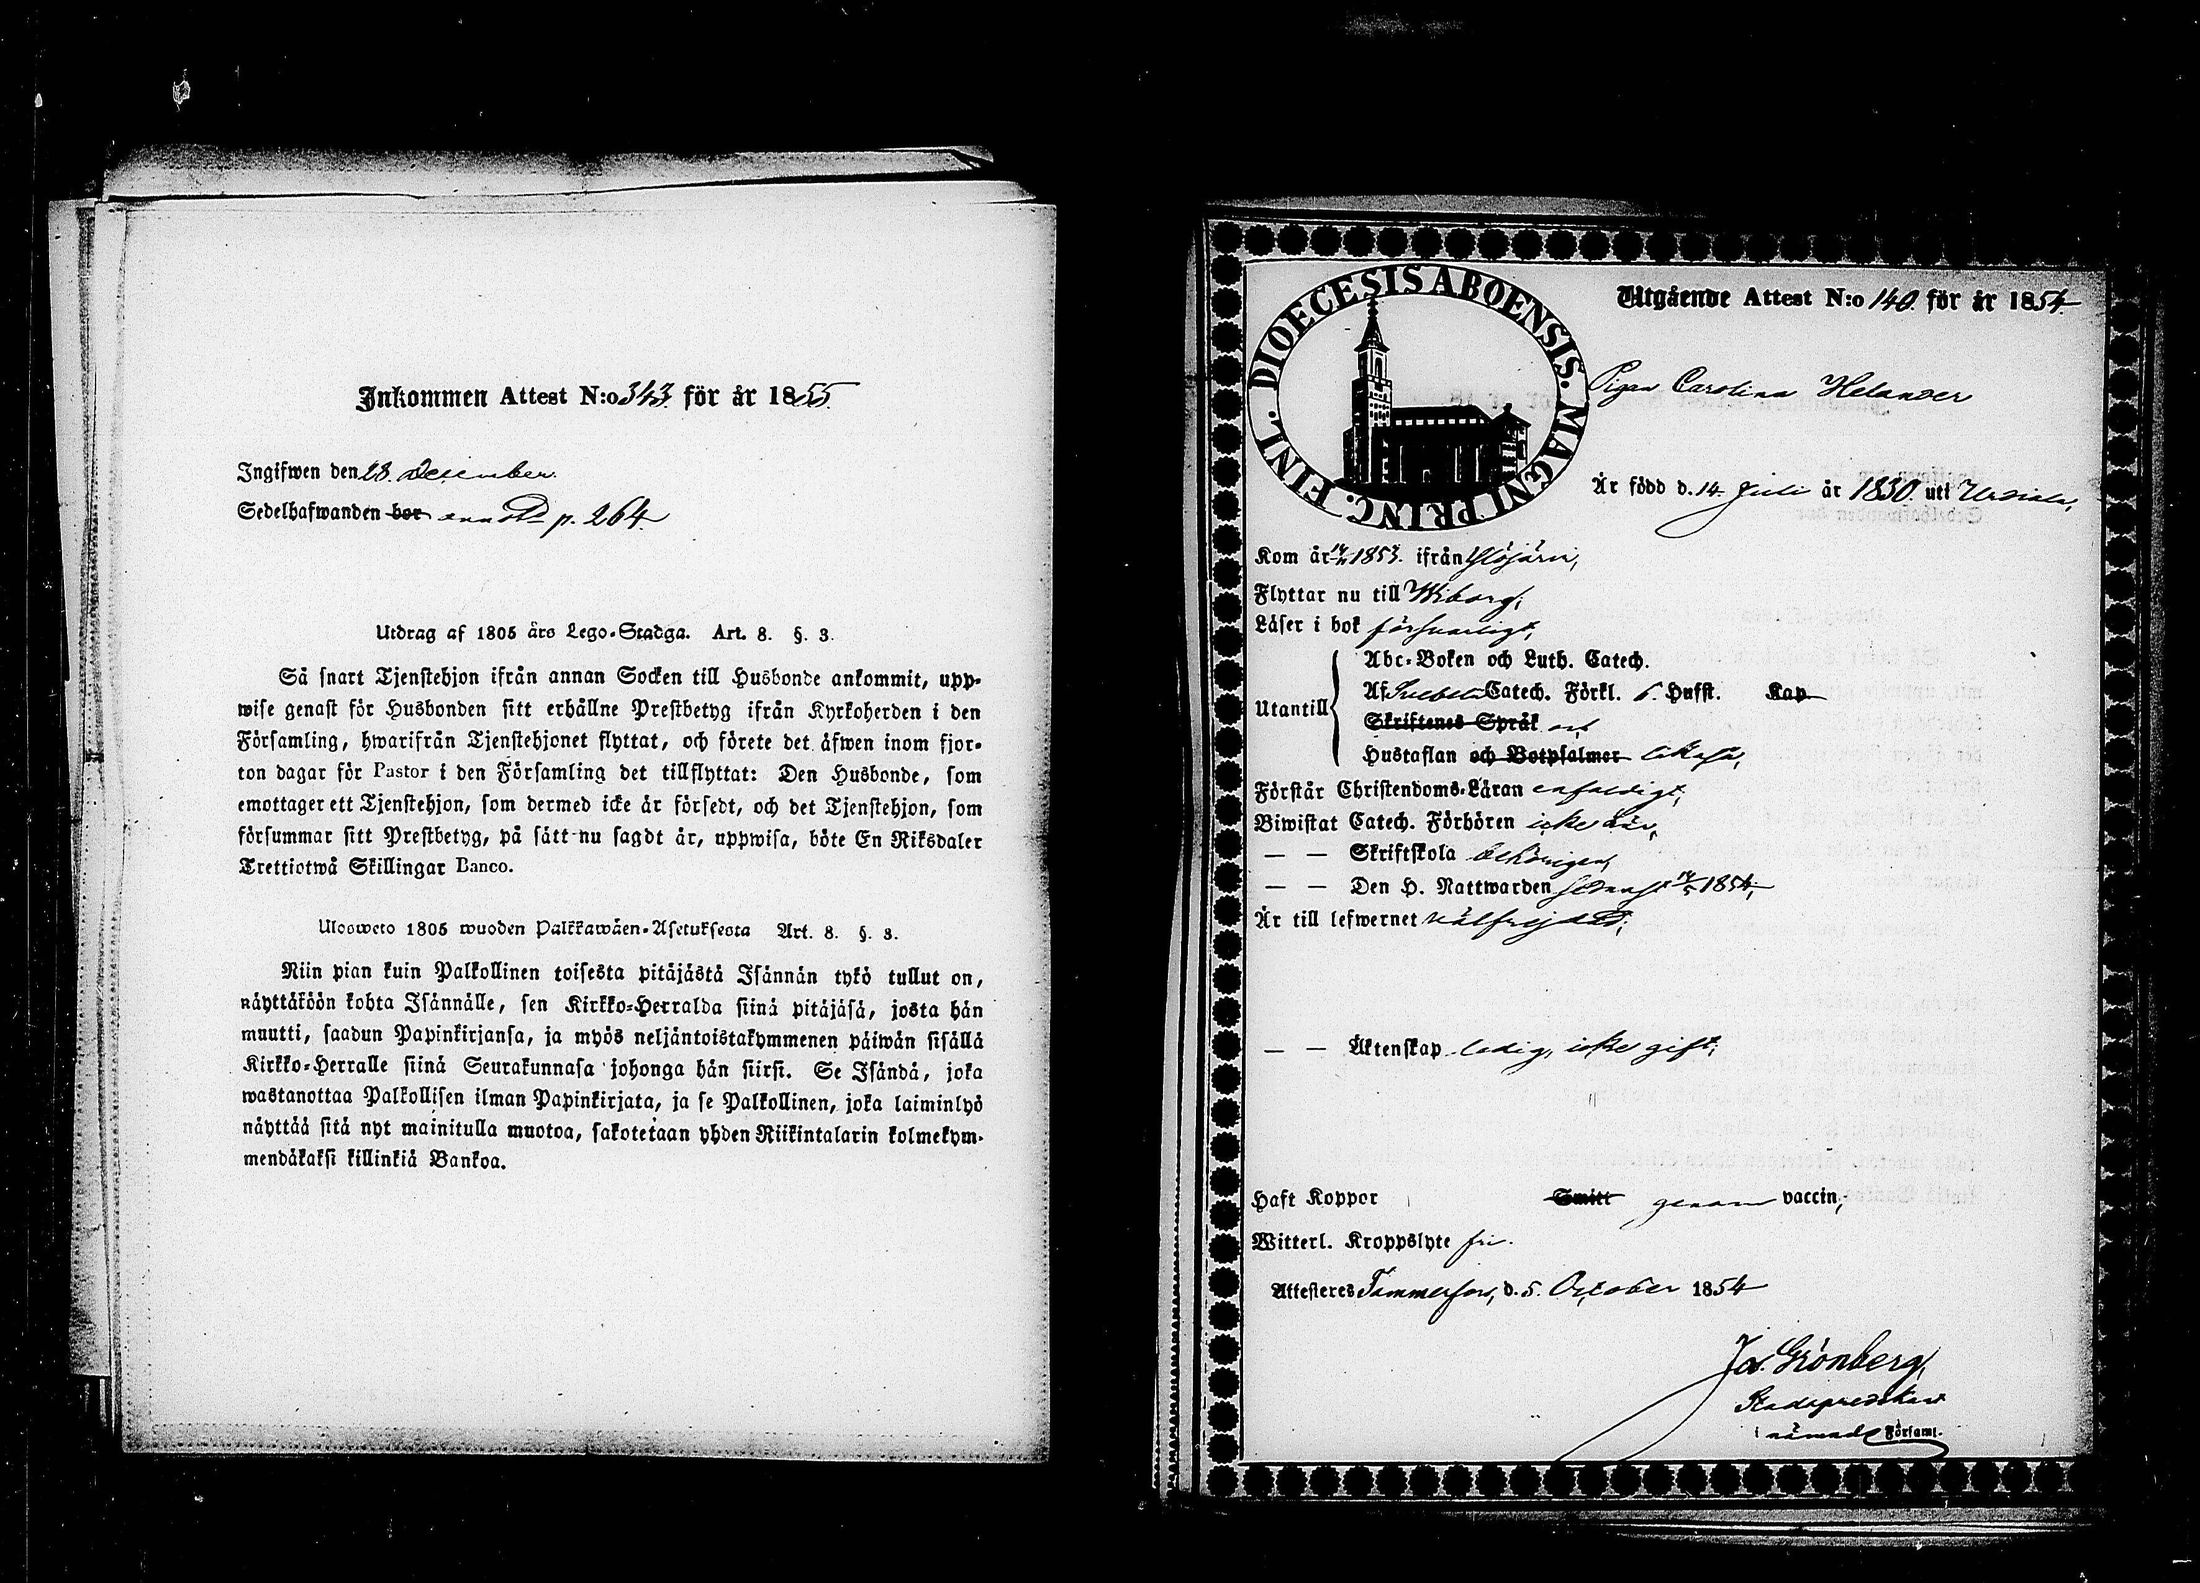 Inkommen Attest N:o 343. för år 1855.
Ingifwen den 28. December.
Sedelhafwanden bor annot p. 264.
Utdrag af 1805 års Lego-Stadga. Art. 8. §. 3.
Så snart Tjenstehjon ifrån annan Socken till Husbonde ankommit, upp-
wise genast för Husbonden sitt erhållne Prestbetyg ifrån Kyrkoherden i den
Församling, hwarifrån Tjenstehjonet flyttat, och förete det äfwen inom fjor-
ton dagar för Pastor i den Församling det tillflyttat: Den Husbonde, som
emottager ett Tjenstehjon, som dermed icke är försedt, och det Tjenstehjon, som
försummar sitt Prestbetyg, på sätt nu sagdt är, uppwisa, böte En Riksdaler
Trettiotwå Skillingar Banco.
Ulosweto 1805 wuoden Palkkawäen-Asetuksesta Art. 8. §. 3.
Niin pian kuin Palkollinen toisesta pitäjästä Isännän tykö tullut on,
näyttäköön kohta Isännälle, sen Kirkko-Herralda siinä pitäjäsä, josta hän
muutti, saadun Papinkirjansa, ja myös neljäntoistakymmenen päiwän sisällä
Kirkko-Herralle siinä Seurakunnasa johonga hän siirsi. Se Isändä, joka
wastanottaa Palkollisen ilman Papinkirjata, ja se Palkollinen, joka laiminlyö
näyttää sitä nyt mainitulla muotoa, sakotetaan yhden Riikintalarin kolmekym-
mendäkaksi killinkiä Bankoa.
DIOECESIS ABOENSIS. MAGNI PRINC. FINL.
Utgående Attest N:o 140. för år 1854.
Pigan Carolina Helander
Är född d. 14. Juli år 1830. uti Urdiala,
Kom år 1853. ifrån Ylöjärvi,
Flyttar nu till Wiborg;
Läser i bok försvarligt,
Utantill
Abc-Boken och Luth. Catech.
Af Svebeli Catech. Förkl. 6. Hufst. Kap
Skriftenes Språk och
Hustaflan och Botpsalmer likaså,
Förstår Christendoms-Läran enfaldigt;
Biwistat Catech. Förhören icke här,
— — Skriftskola behörigen,
— — Den H. Nattwarden sednast 14/5 1854;
Är till lefwernet välfrejdad;
— — Äktenskap ledig, icke gift;
Haft Koppor Smitt genom vaccin;
Witterl. Kroppslyte fri.
Attesteres Tammerfors, d. 5. October 1854
Grönberg,
Stadspredikant
i nämnde Församl.